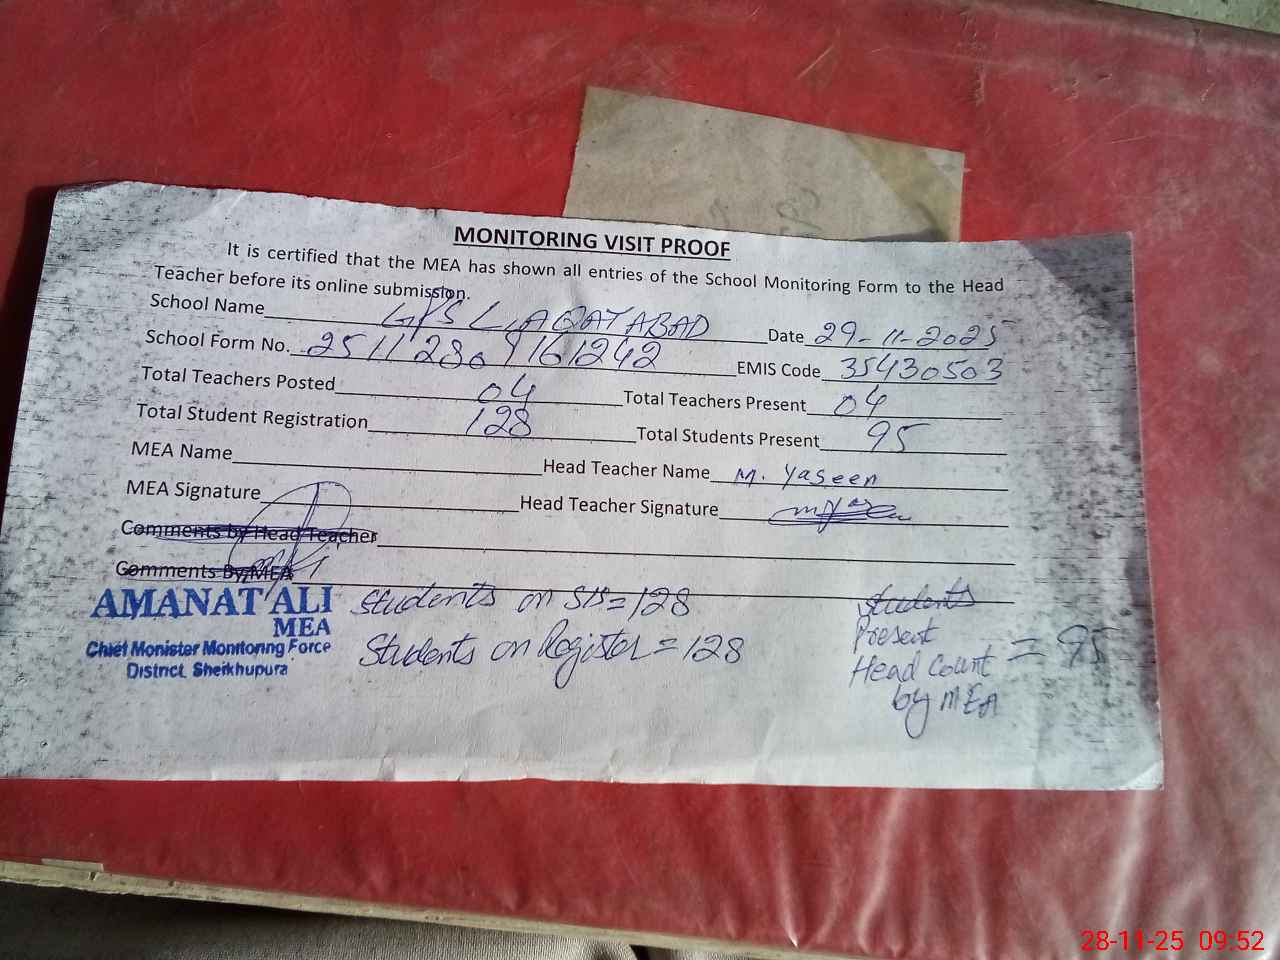 MONITORING VISIT PROOF
It is certified that the MEA has shown all entries of the School Monitoring Form to the Head
Teacher before its online submission.
School Name GPS LIAQATABAD Date 29-11-2025
School Form No. 25112809161242 EMIS Code 35430503
Total Teachers Posted 04 Total Teachers Present 04
Total Student Registration 128 Total Students Present 95
MEA Name Head Teacher Name M. Yaseen
MEA Signature Head Teacher Signature
Comments by Head Teacher
Comments By MEA
AMANAT ALI
MEA
Chief Monister Monitoring Force
District Sheikhupura
Students on SIS = 128
Students on Register = 128
Students
Present
Head Count = 95
by MEA
28-11-25 09:52